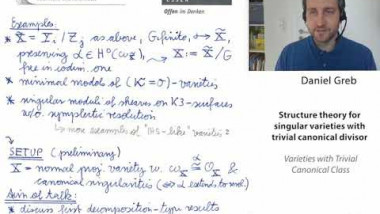 Offen im Denken
Examples:
• X̃ = Y_1/Z_2 as above, G finite, ↪ X̃,
preserving α ∈ H⁰(ω_X̃), ⇝ X := X̃/G
free in codim. one
• minimal models of (K = 0)-varieties
• singular moduli of sheaves on K3-surfaces
w/o. symplectic resolution
↳ more examples of "IHS-like" varieties ?
SETUP (preliminary)
X = normal proj. variety w. ω_X ≅ O_X &
canonical singularities (⇔ α extends to resol.)
Aim of talk:
• discuss first decomposition-type results
Daniel Greb
Structure theory for
singular varieties with
trivial canonical divisor
Varieties with Trivial
Canonical Class